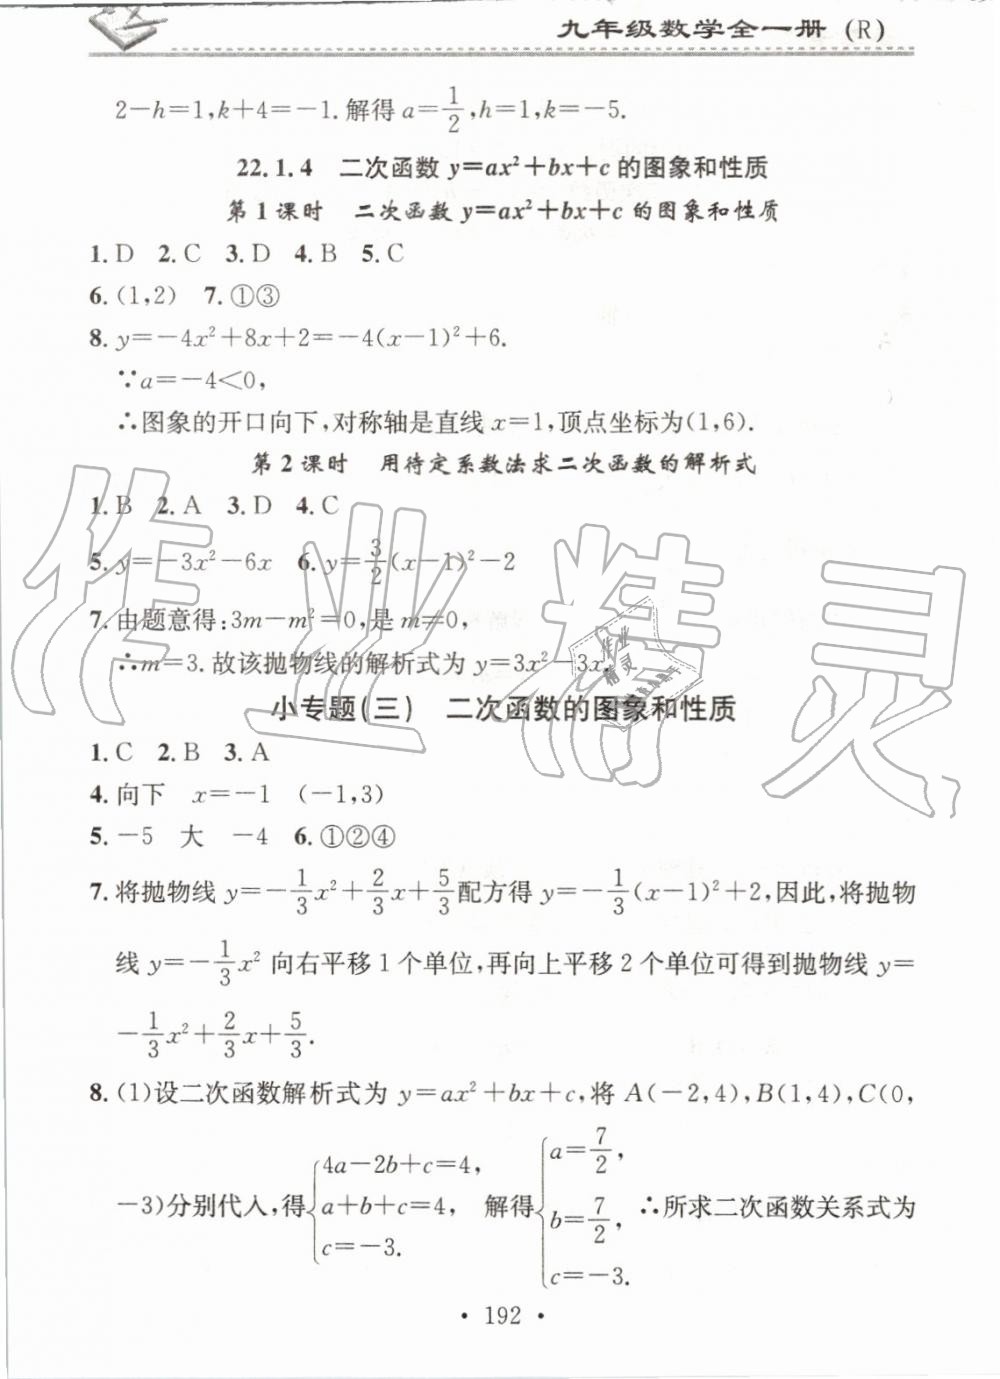 九年级数学全一册 (R)
2-h=1,k+4=-1.解得 a=1/2,h=1,k=-5.
22.1.4 二次函数 y=ax²+bx+c 的图象和性质
第1课时 二次函数 y=ax²+bx+c 的图象和性质
1.D 2.C 3.D 4.B 5.C
6.(1,2) 7.①③
8.y=-4x²+8x+2=-4(x-1)²+6.
∵a=-4<0,
∴图象的开口向下,对称轴是直线 x=1,顶点坐标为(1,6).
第2课时 用待定系数法求二次函数的解析式
1.B 2.A 3.D 4.C
5.y=-3x²-6x 6.y=3/2(x-1)²-2
7.由题意得:3m-m²=0,是 m≠0,
∴m=3.故该抛物线的解析式为 y=3x²-3x.
小专题(三) 二次函数的图象和性质
1.C 2.B 3.A
4.向下 x=-1 (-1,3)
5.-5 大 -4 6.①②④
7.将抛物线 y=-1/3x²+2/3x+5/3配方得 y=-1/3(x-1)²+2,因此,将抛物
线 y=-1/3x² 向右平移1个单位,再向上平移2个单位可得到抛物线 y=
-1/3x²+2/3x+5/3.
8.(1)设二次函数解析式为 y=ax²+bx+c,将 A(-2,4),B(1,4),C(0,
-3)分别代入,得{4a-2b+c=4, a+b+c=4, c=-3. 解得{a=7/2, b=7/2, c=-3. ∴所求二次函数关系式为
· 192 ·
作业精灵
作业
精灵